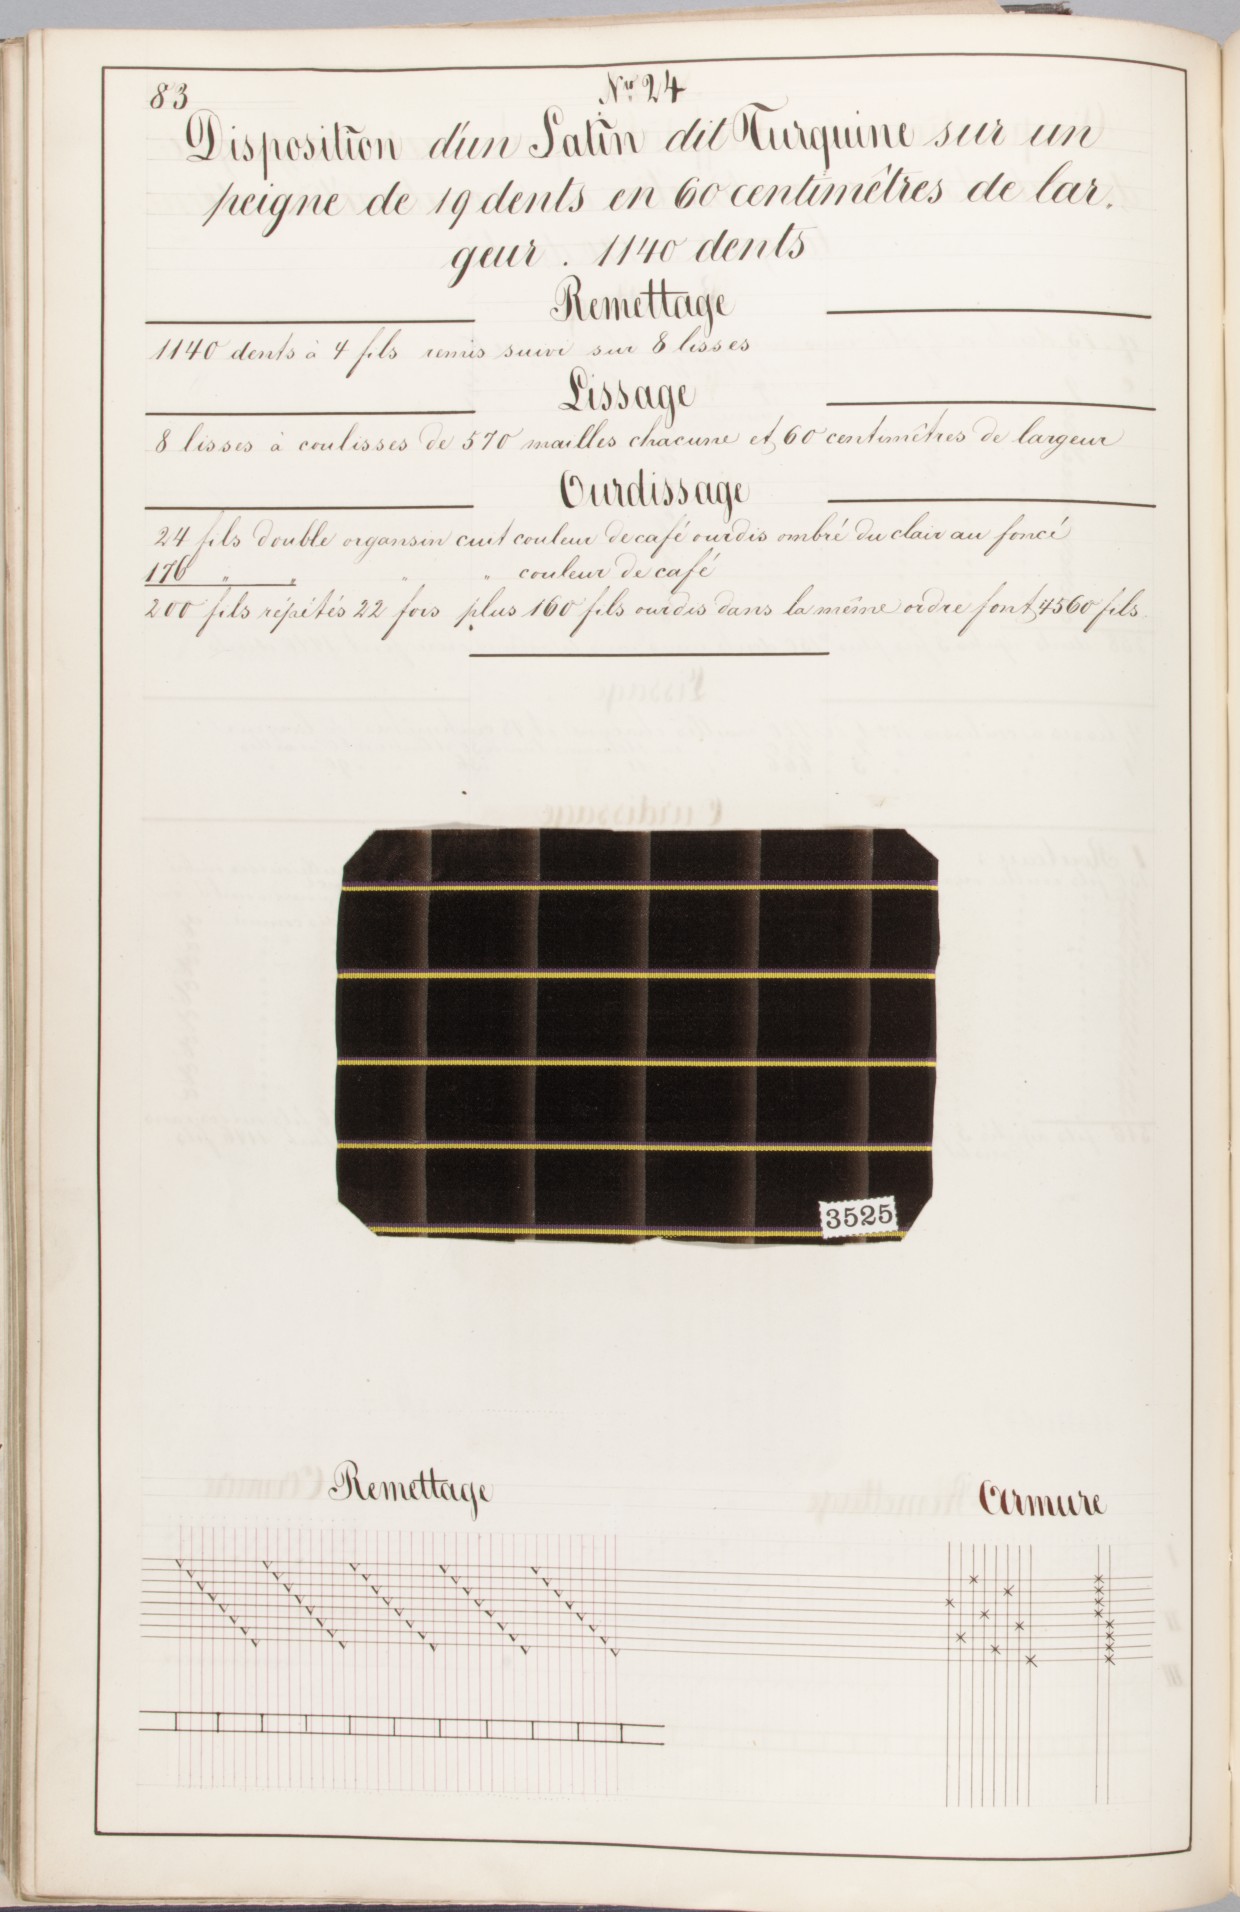 83
No. 24
Disposition d'un Satin dit Turquine sur un
peigne de 19 dents en 60 centimêtres de lar.
geur. 1140 dents
Remettage
1140 dents à 4 fils remis suivi sur 8 lisses
Lissage
8 lisses à coulisses de 570 mailles chacune et 60 centimêtres de largeur
Ourdissage
24 fils double organsin cuit couleur de café ourdis ombré du clair au foncé
176 " " " " couleur de café
200 fils répétés 22 fois plus 160 fils ourdis dans la même ordre font 4560 fils
3525
Remettage
Armure